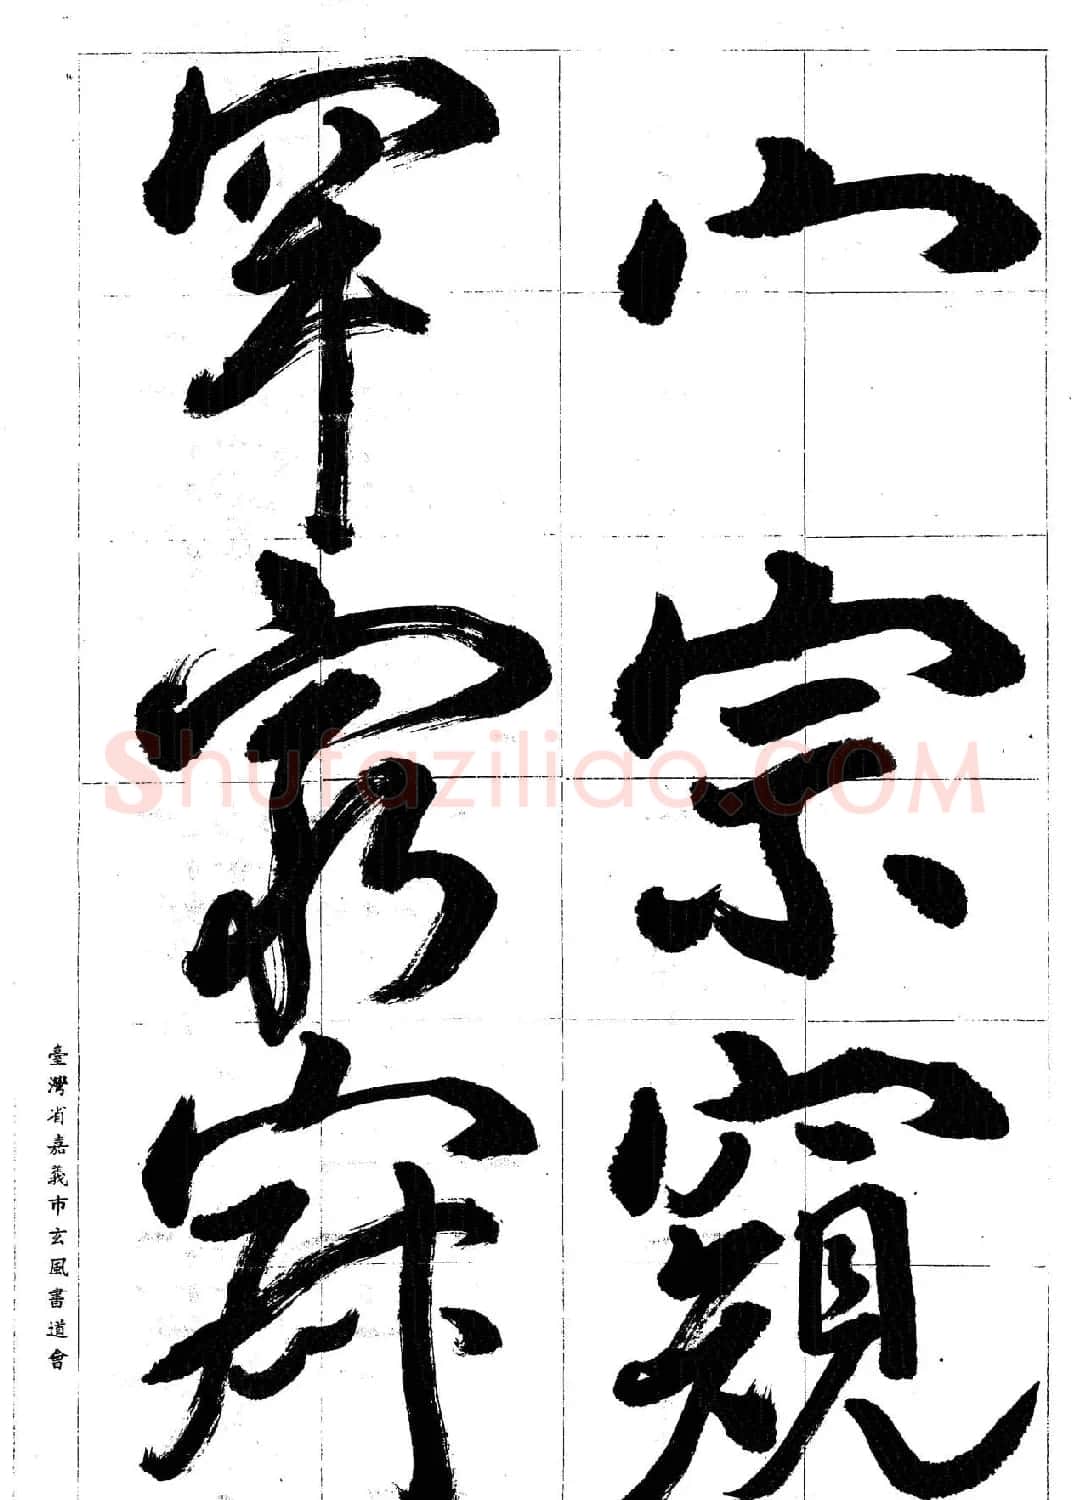 宀宗窺
罕家
臺灣省嘉義市玄風書道會
Shufaziliao.COM